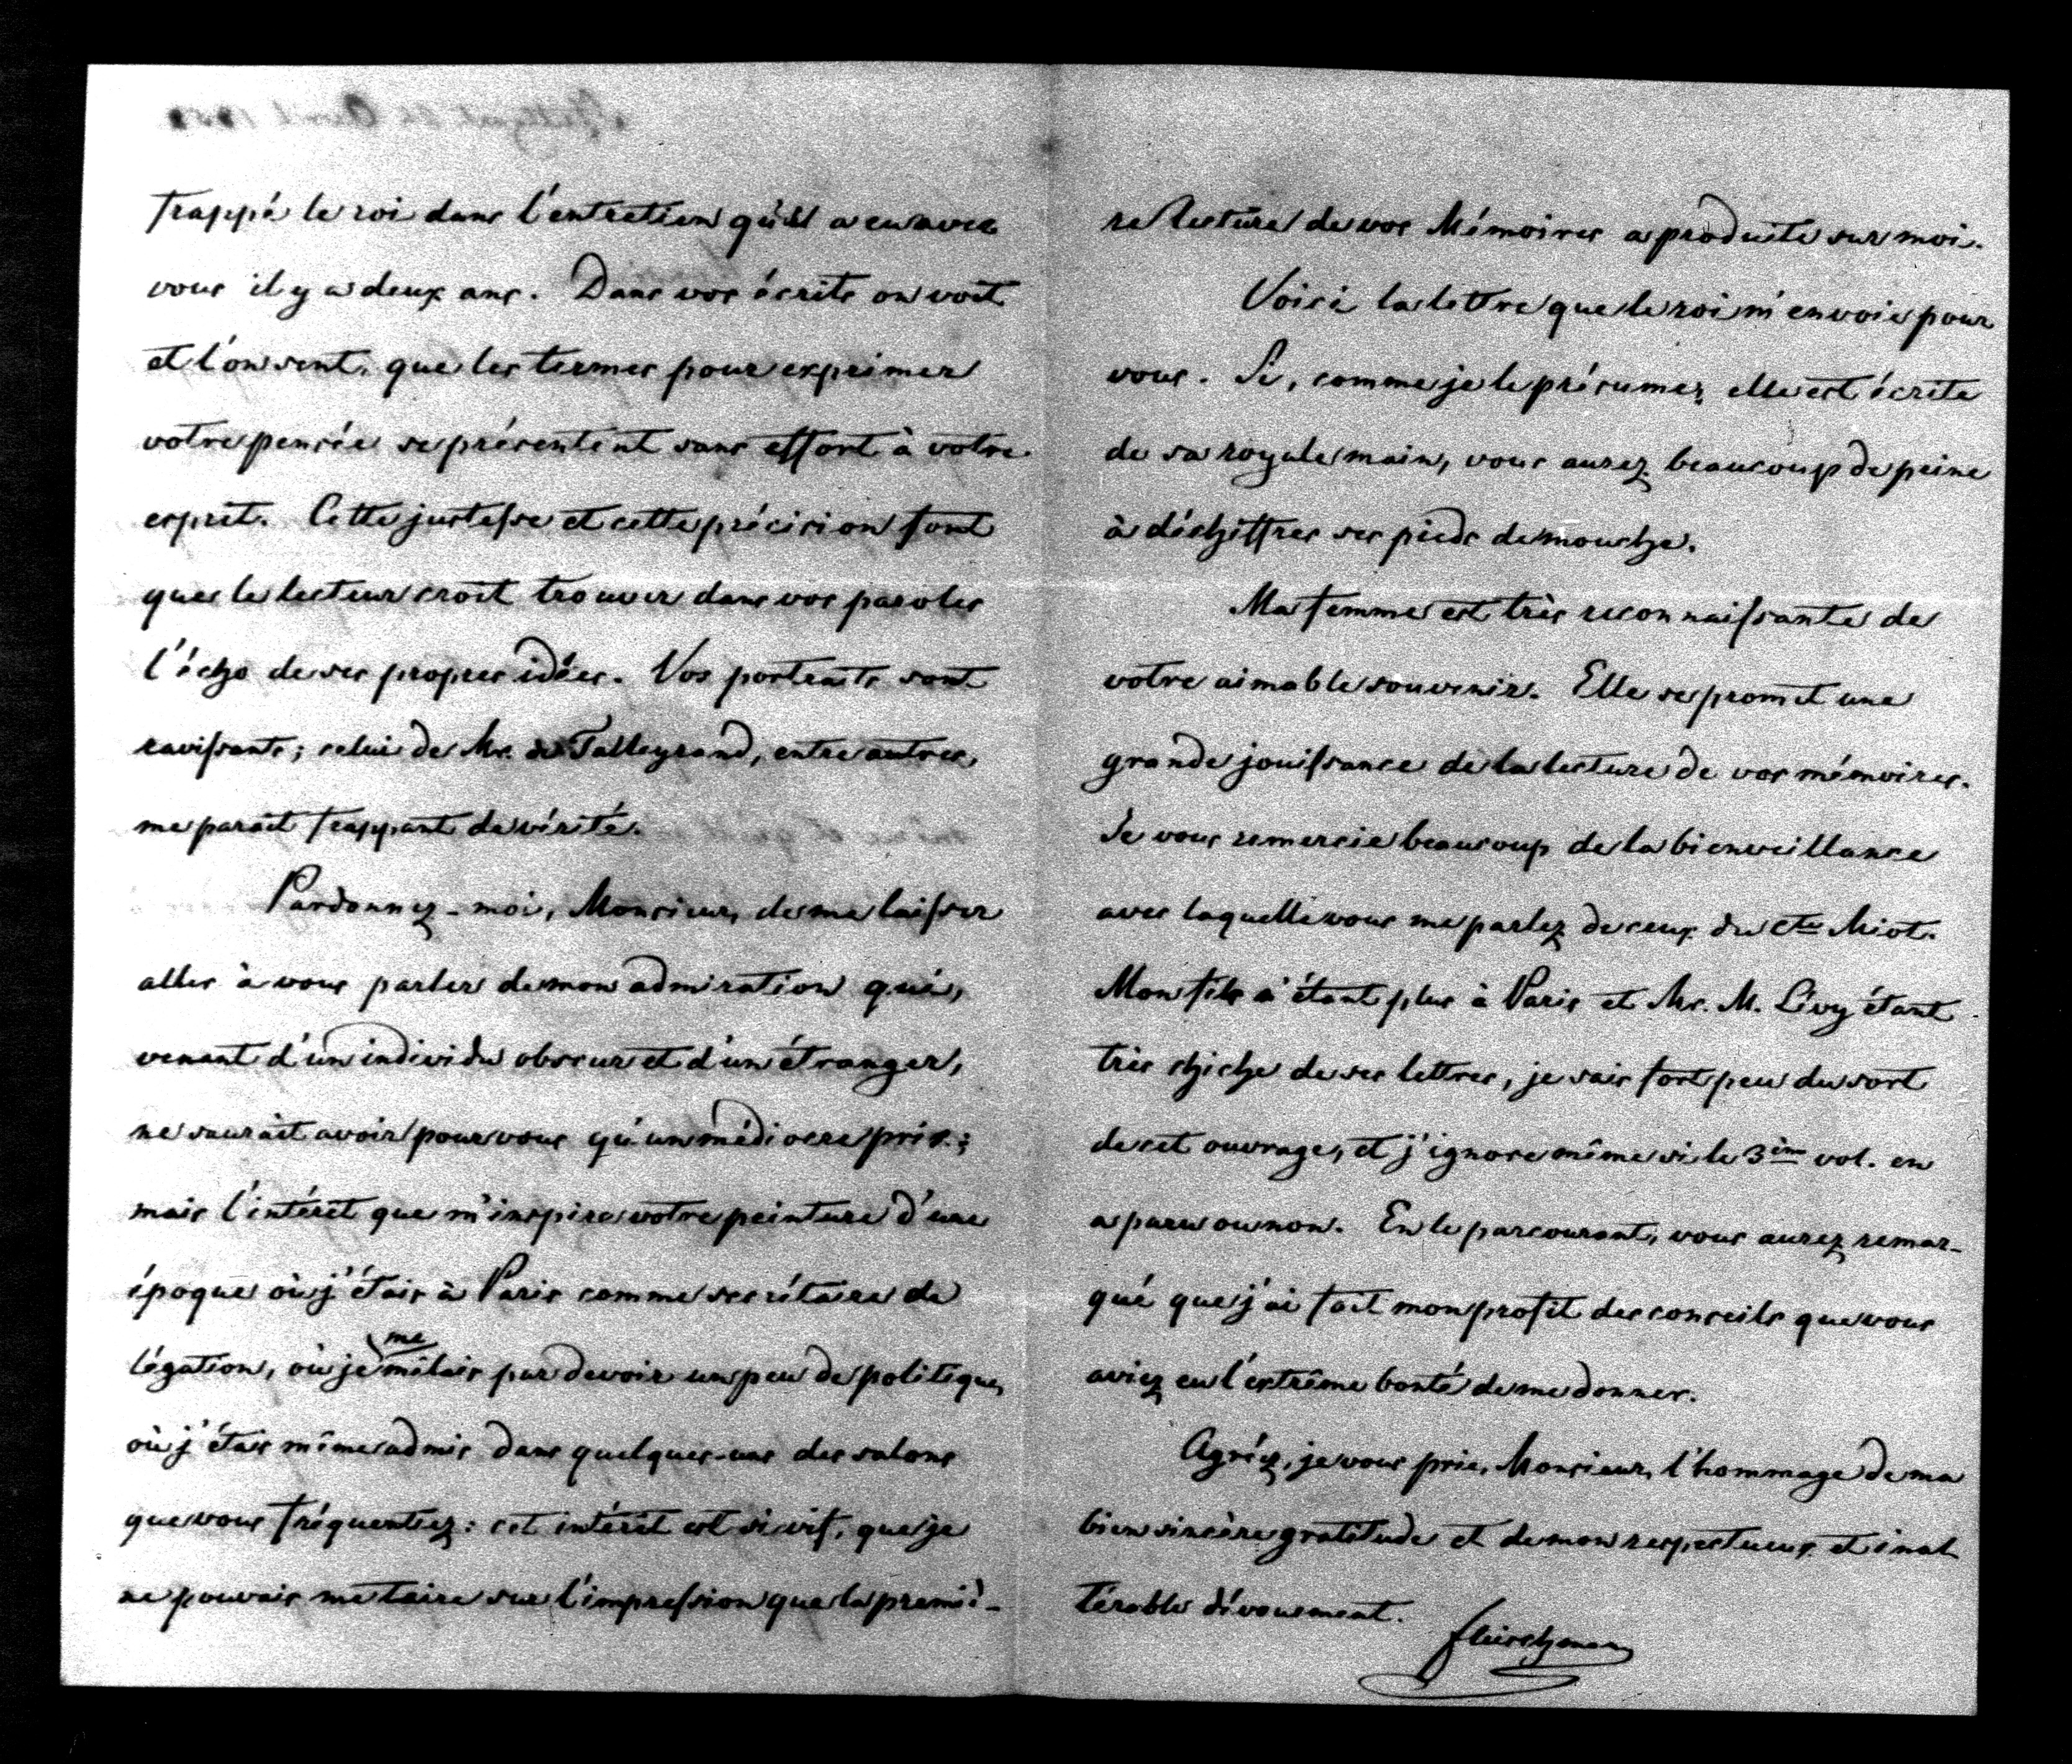 frappé le roi dans l'entretien qu'il a eu avec
vous il y a deux ans. Dans vos écrits on voit
et l'on sent, que les termes pour exprimer
votre pensée se présentent sans effort à votre
esprit. Cette justesse et cette précision font
que le lecteur croit trouver dans vos paroles
l'écho de ses propres idées. Vos portraits sont
ravissants; celui de Mr. de Talleyrand, entre autres,
me parait frappant de vérité.
Pardonnez-moi, Monsieur, de me laisser
aller à vous parler de mon admiration qui,
venant d'un individu obscur et d'un étranger,
ne saurait avoir pour vous qu'un médiocre prix;
mais l'intérêt que m'inspire votre peinture d'une
époque où j'étais à Paris comme secrétaire de
légation, où je me mêlais par devoir un peu de politique,
où j'étais même admis dans quelques-uns des salons
que vous fréquentiez: cet intérêt est si vif, que je
ne pouvais me taire sur l'impression que la premiè-
re lecture de vos Mémoires a produite sur moi.
Voici la lettre que le roi m'envoie pour
vous. Si, comme je le présume, elle est écrite
de sa royale main, vous aurez beaucoup de peine
à déchiffrer ses pieds de mouche.
Ma femme est très reconnaissante de
votre aimable souvenir. Elle se promet une
grande jouissance de la lecture de vos mémoires.
Je vous remercie beaucoup de la bienveillance
avec laquelle vous me parlez de ceux du Cte Miot.
Mon fils n'étant plus à Paris et Mr. M. Lévy étant
très chiche de ses lettres, je sais fort peu du sort
de cet ouvrage, et j'ignore même si le 3ième vol. en
a paru ou non. En le parcourant, vous aurez remar-
qué que j'ai fait mon profit des conseils que vous
aviez eu l'extrême bonté de me donner.
Agréez, je vous prie, Monsieur, l'hommage de ma
bien sincère gratitude et de mon respectueux et inal
térable dévouement.
Fleischmann